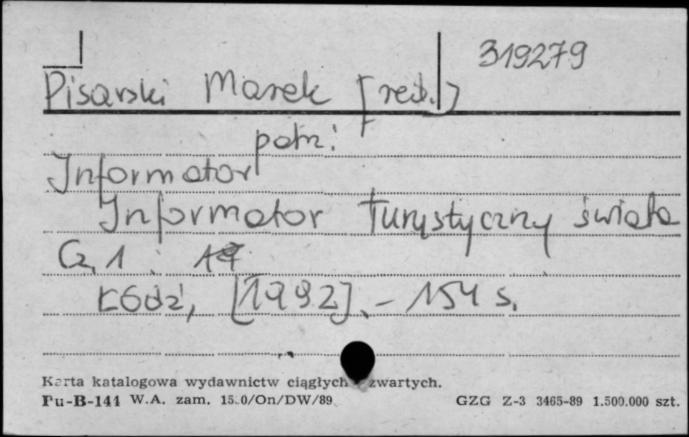 319279
Pisarski Marek [red.]
patrz:
Informator
Informator turystyczny świata
Cz. 1 :
Łódź, [1992]. - 154 s.
Karta katalogowa wydawnictw ciągłych zwartych.
Pu-B-144 W.A. zam. 15.0/On/DW/89 GZG Z-3 3465-89 1.500.000 szt.